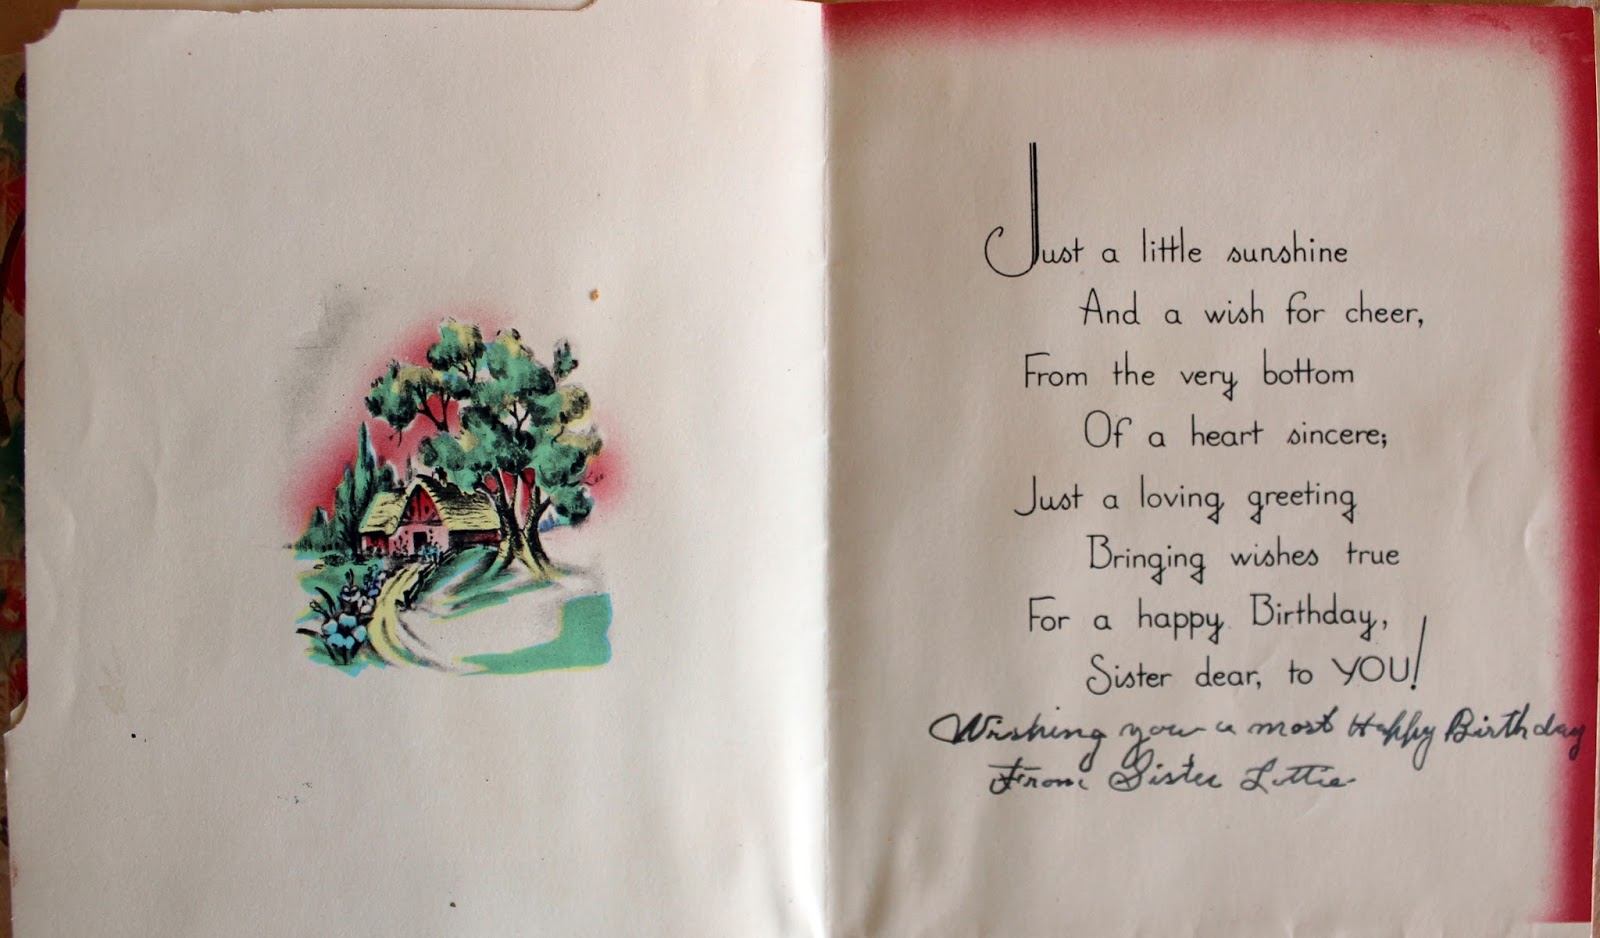 Just a little sunshine
And a wish for cheer,
From the very bottom
Of a heart sincere;
Just a loving greeting
Bringing wishes true
For a happy Birthday,
Sister dear, to YOU!
Wishing you a most Happy Birthday
From Sister Lottie